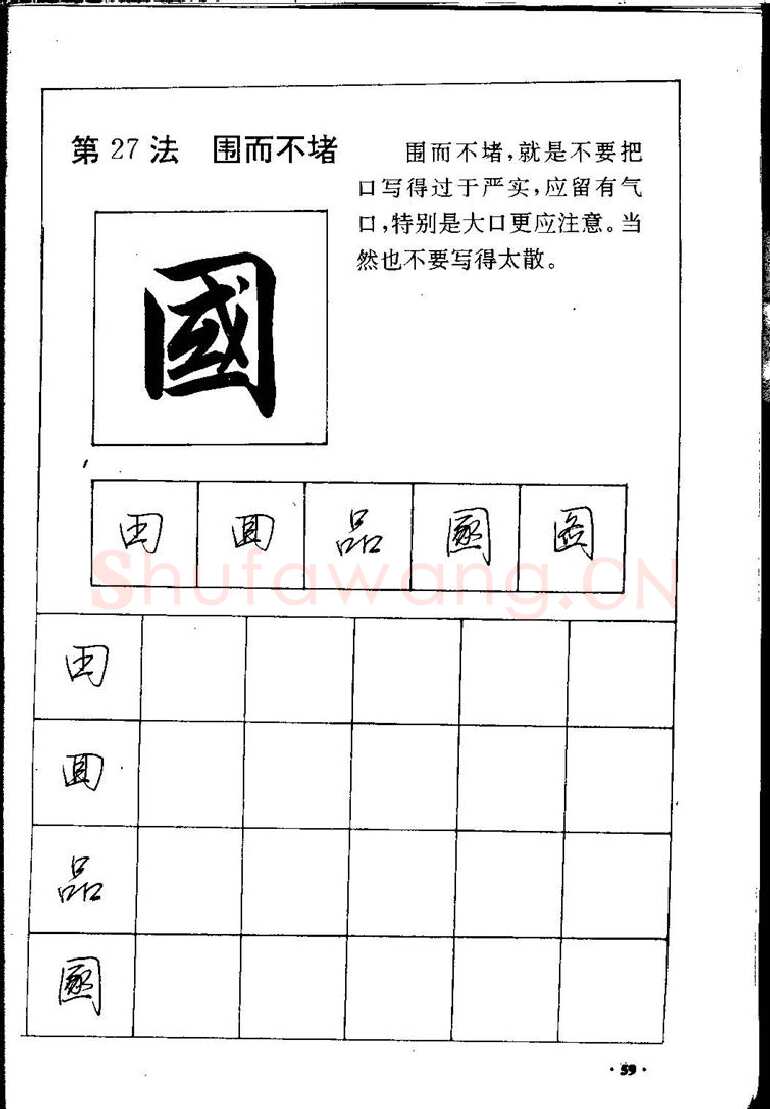 第27法 围而不堵
围而不堵，就是不要把
口写得过于严实，应留有气
口，特别是大口更应注意。当
然也不要写得太散。
國
田 品
Shufawang.CN
田
品
·59·